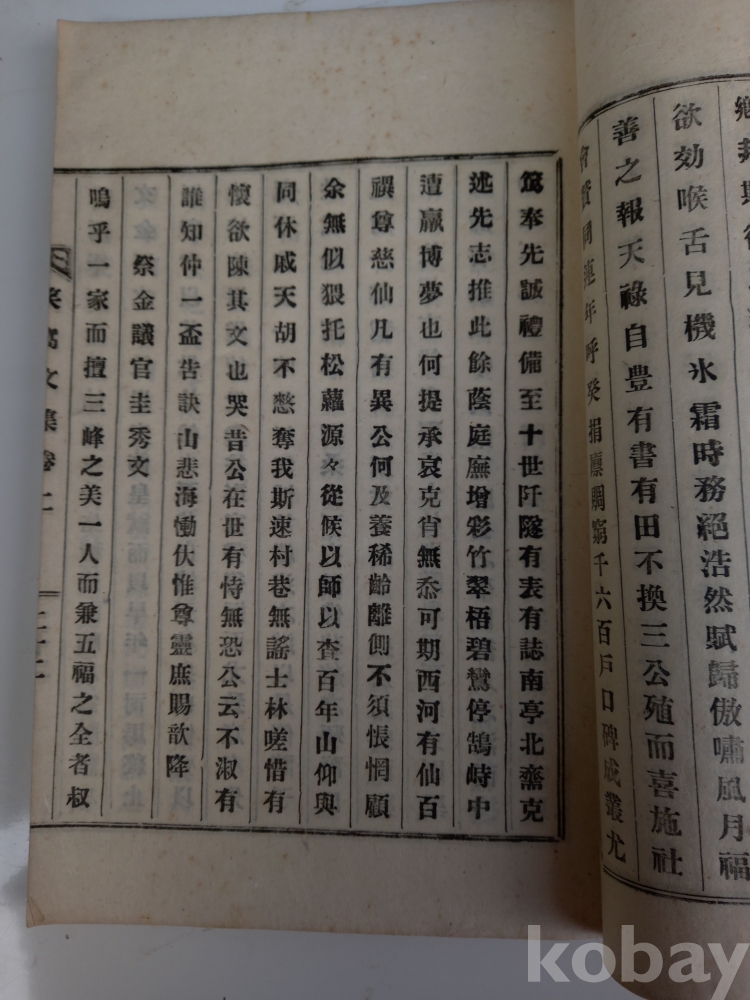 欲効喉舌見機氷霜時務絕浩然賦歸傲嘯風月福
善之報天祿自豊有書有田不換三公殖而喜施社
會賢同連年呼癸捐廩賙窮千六百戶口碑成叢尤
篤奉先誠禮備至十世阡隧有表有誌南亭北齋克
述先志推此餘蔭庭廡增彩竹翠梧碧鸞停鵠峙中
遭嬴博夢也何提承哀克肖無忝可期西河有仙百
禩尊慈仙凡有異公何及養稀齡離側不須悵惘顧
余無似猥托松蘿源々從候以師以查百年山仰與
同休戚天胡不憖奪我斯速村巷無謠士林嗟惜有
懷欲陳其文也哭昔公在世有恃無恐公云不淑有
誰知仲一盃告訣山悲海慟伏惟尊靈庶賜歆降
祭金議官圭秀文
嗚乎一家而擅三峰之美一人而兼五福之全者叔
文集卷二 二十二
kobay